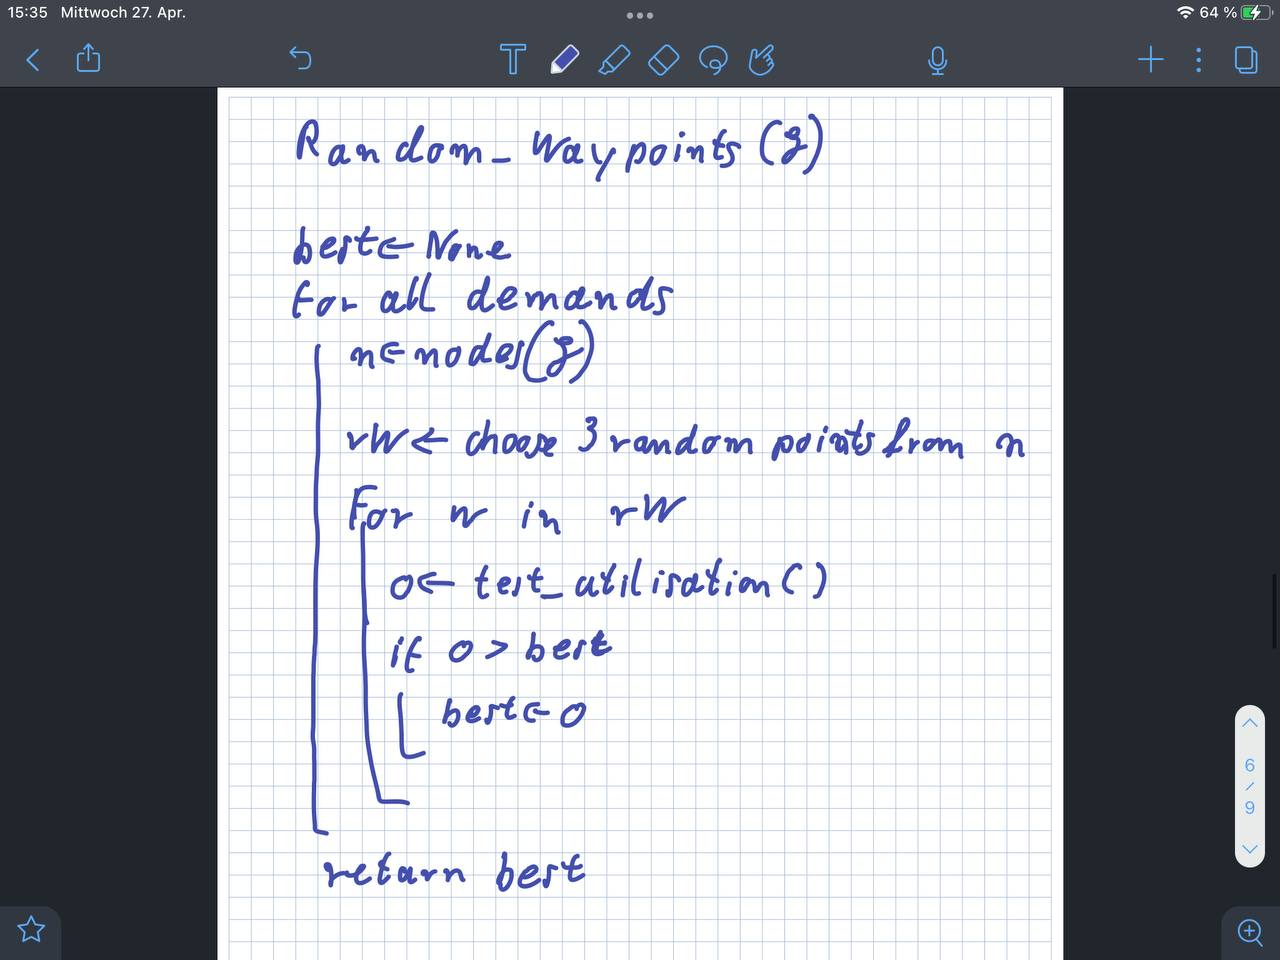 15:35 Mittwoch 27. Apr.
64 %
Random_Waypoints(g)
best ← None
For all demands
n ← nodes(g)
rW ← choose 3 random points from n
For w in rW
o ← test_utilisation()
if o > best
best ← o
return best
6
/
9